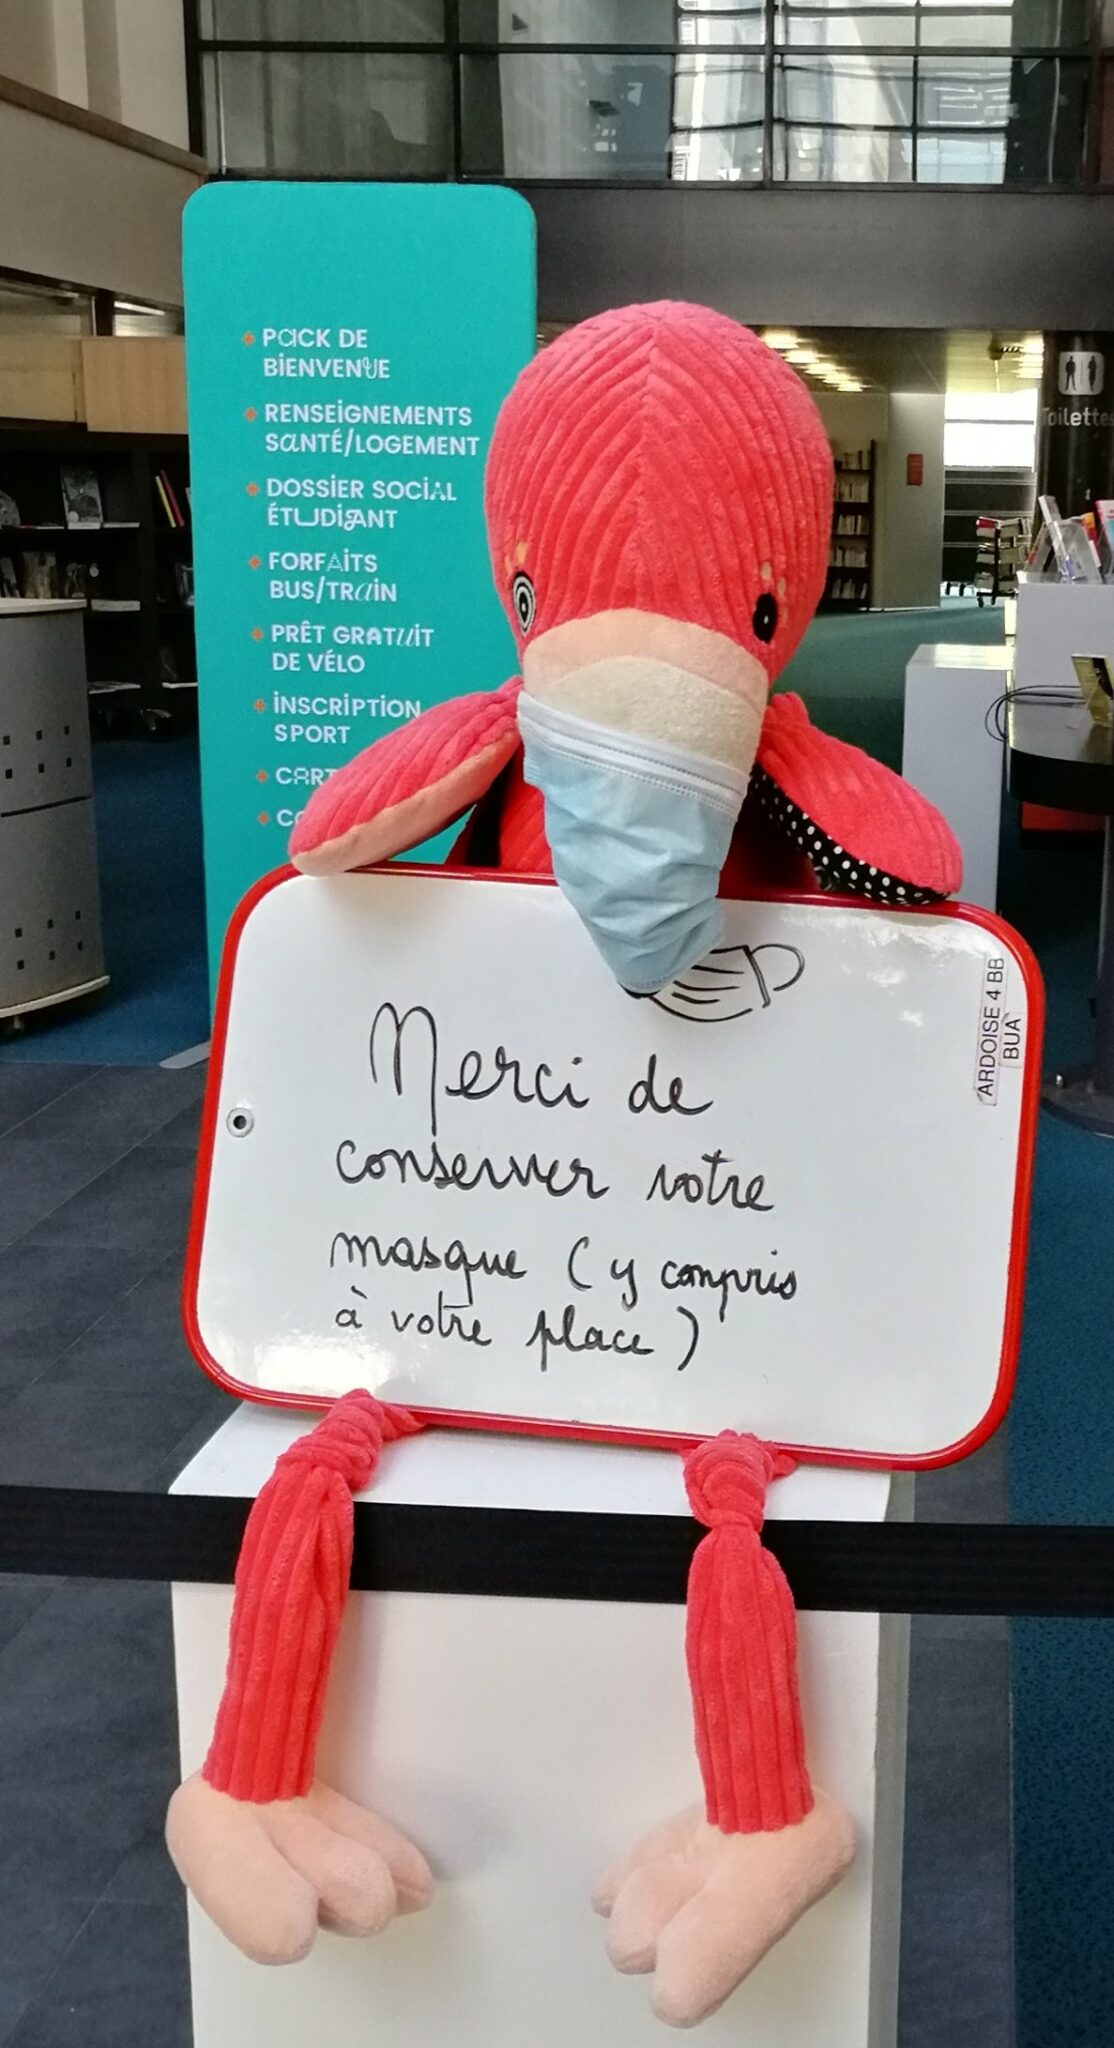 + PACK DE
BIENVENUE
+ RENSEIGNEMENTS
SANTÉ/LOGEMENT
+ DOSSIER SOCIAL
ÉTUDIANT
+ FORFAITS
BUS/TRAIN
+ PRÊT GRATUIT
DE VÉLO
+ INSCRIPTION
SPORT
Toilettes
ARDOISE 4 BB
BUA
Merci de
conserver votre
masque (y compris
à votre place)